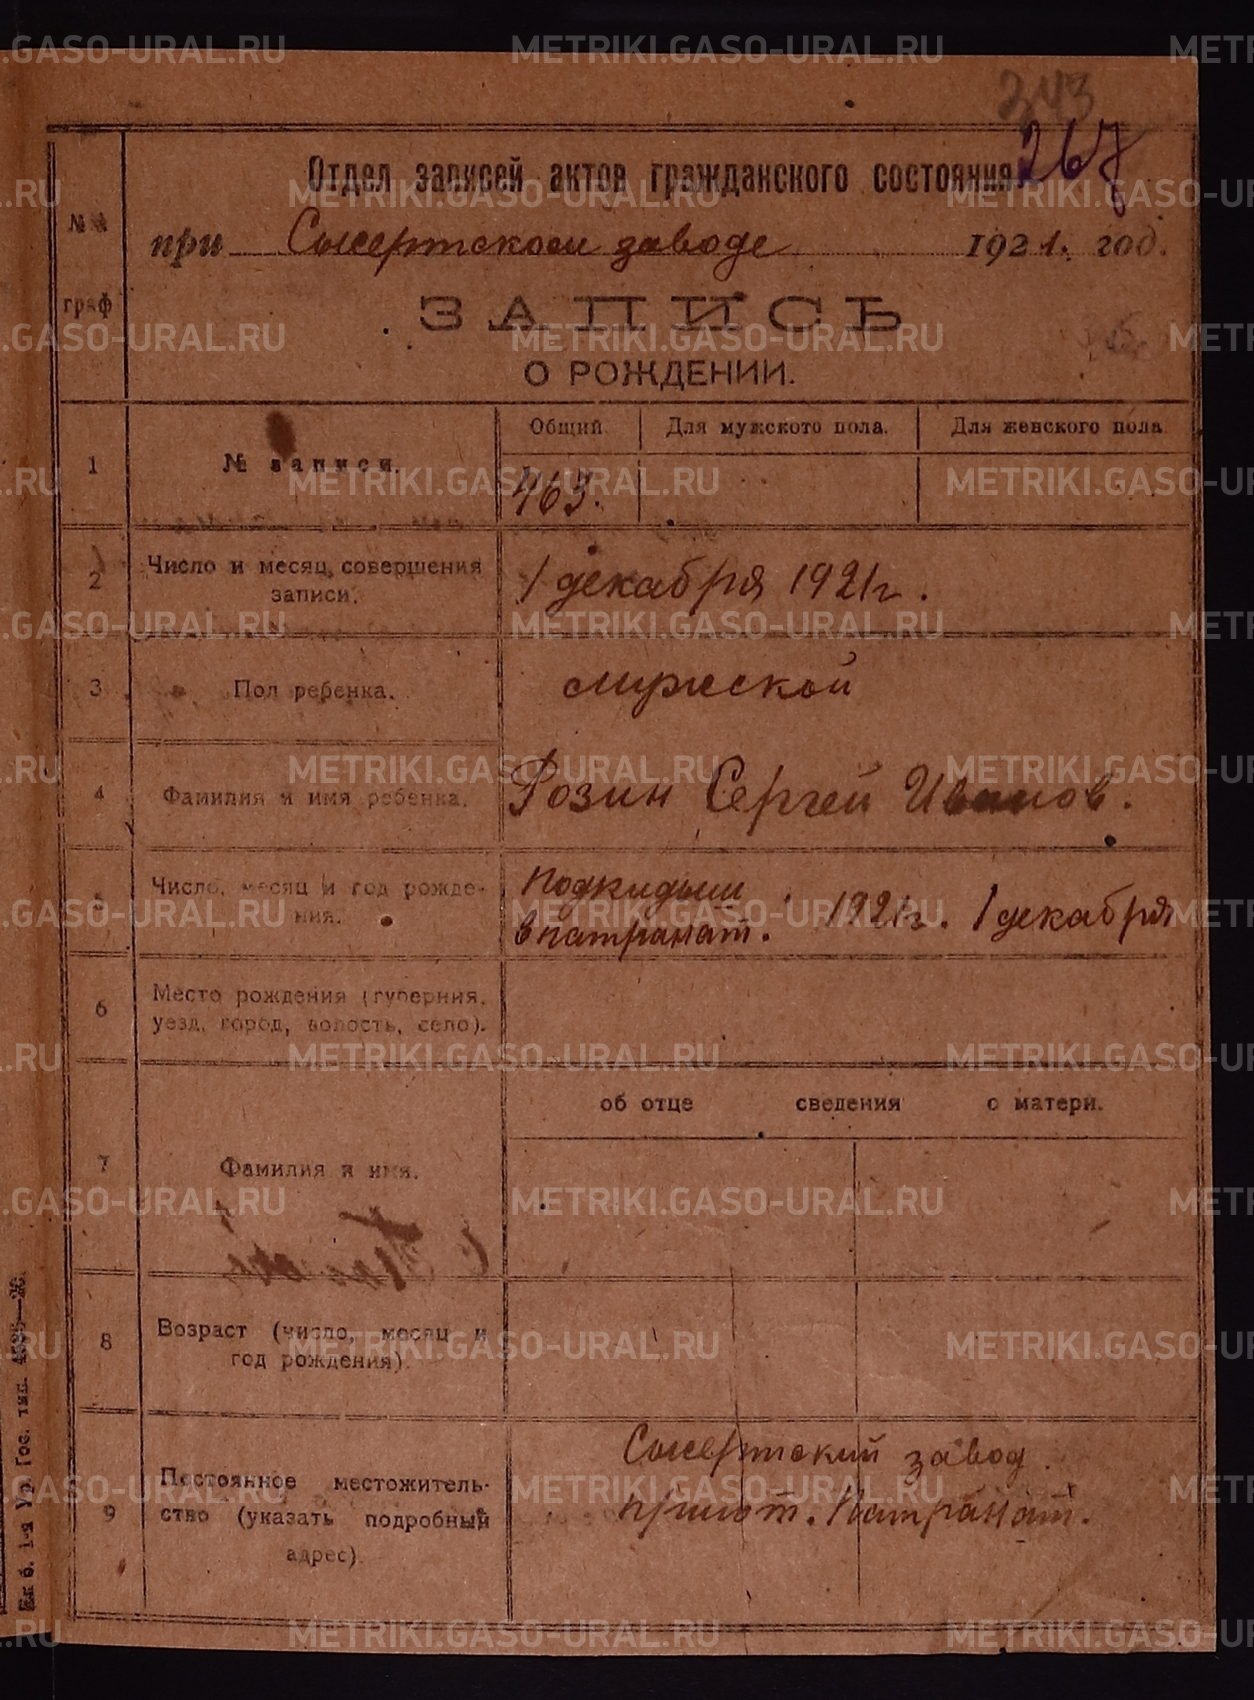 343
267
Отдел записей актов гражданского состояния
при Сысертском заводе 1921. год.
№№ граф
ЗАПИСЬ
О РОЖДЕНИИ.
Общий. Для мужского пола. Для женского пола
1 № записи. 463.
2 Число и месяц совершения записи. 1 декабря 1921 г.
3 Пол ребенка. мужской
4 Фамилия и имя ребенка. Розин Сергей Иванов.
5 Число, месяц и год рождения. Подкидыш в патранат. 1921 г. 1 декабря
6 Место рождения (губерния, уезд, город, волость, село).
об отце сведения о матери.
7 Фамилия и имя.
8 Возраст (число, месяц и год рождения).
9 Постоянное местожительство (указать подробный адрес). Сысертский завод
приют. Патранат.
Ек б. 1-я Ур. Гос. тип.
METRIKI.GASO-URAL.RU